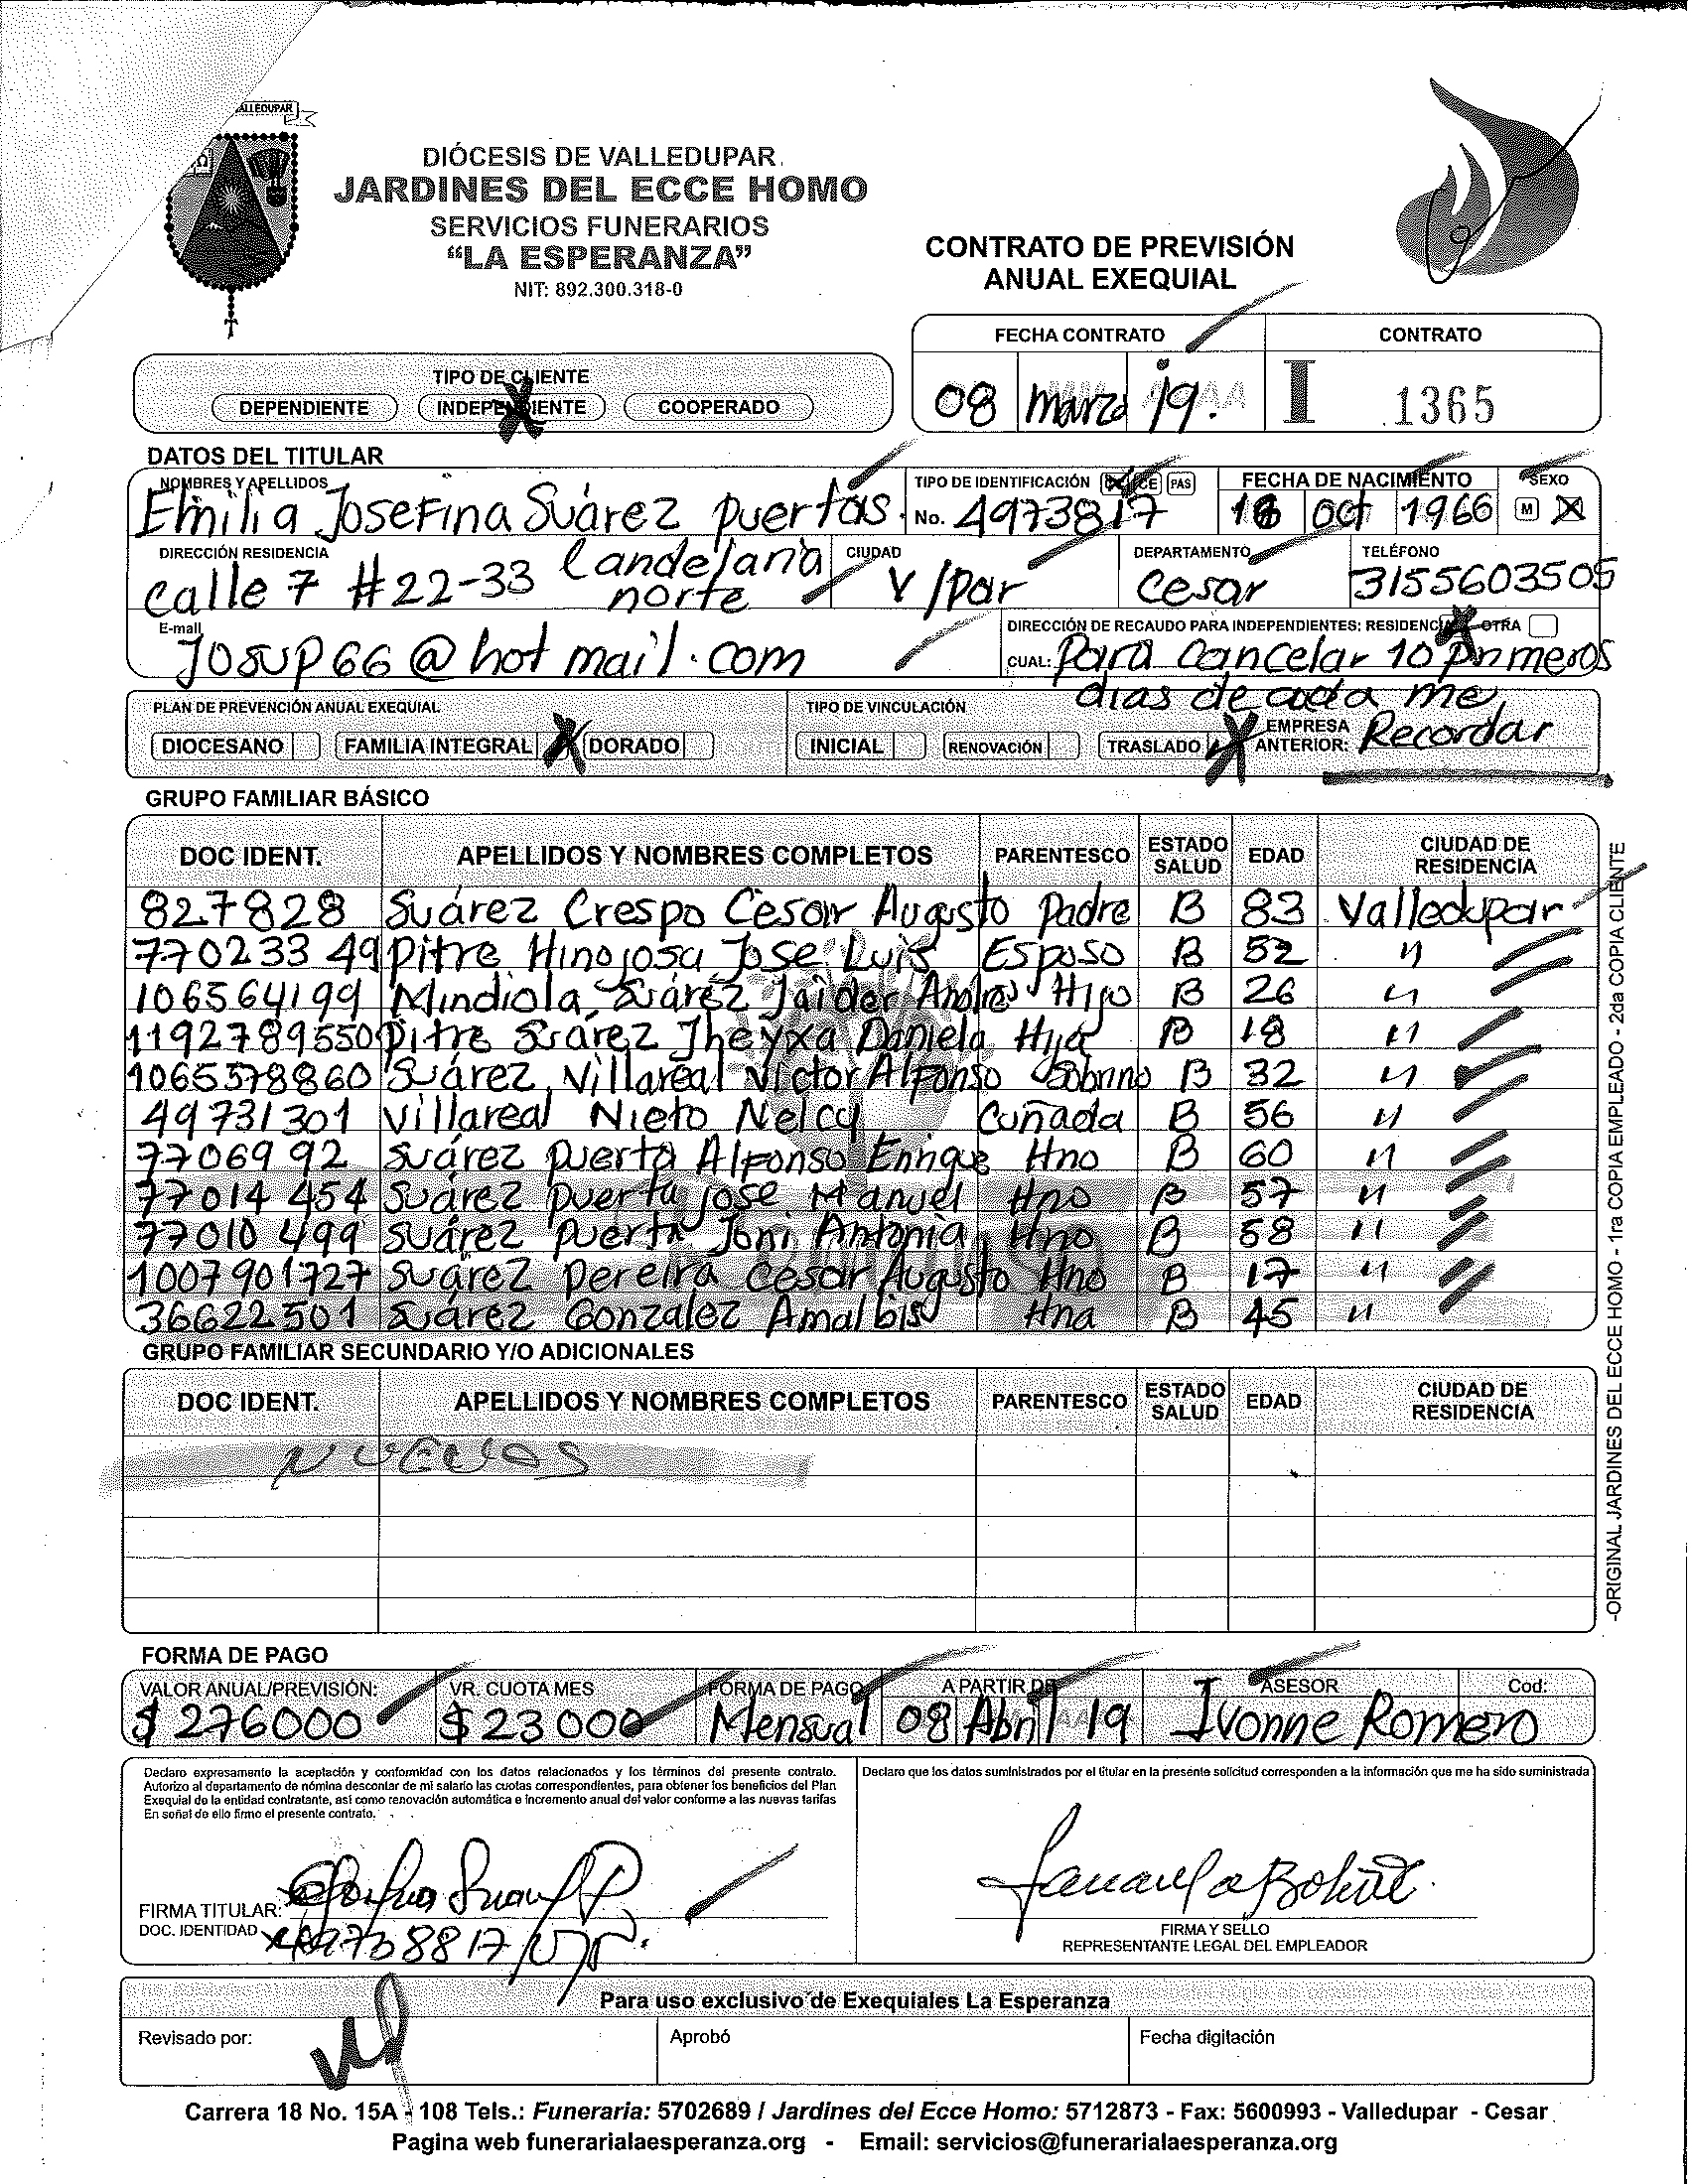 ALLEDUPAR
DIÓCESIS DE VALLEDUPAR
JARDINES DEL ECCE HOMO
SERVICIOS FUNERARIOS
“LA ESPERANZA”
NIT: 892.300.318-0
CONTRATO DE PREVISIÓN
ANUAL EXEQUIAL
FECHA CONTRATO CONTRATO
08 marzo 19. I 1365
TIPO DE CLIENTE
DEPENDIENTE INDEPENDIENTE COOPERADO
DATOS DEL TITULAR
NOMBRES Y APELLIDOS TIPO DE IDENTIFICACIÓN CE PAS FECHA DE NACIMIENTO SEXO
Emilia Josefina Suárez puertas. No. 49738817 oct 1966 M
DIRECCIÓN RESIDENCIA CIUDAD DEPARTAMENTO TELÉFONO
calle 7 #22-33 Candelaria norte V/par Cesar 3155603505
E-mail DIRECCIÓN DE RECAUDO PARA INDEPENDIENTES: RESIDENCIA OTRA
Josup66@hotmail.com CUAL: Para cancelar 10 primeros
dias de cada me
PLAN DE PREVENCIÓN ANUAL EXEQUIAL TIPO DE VINCULACIÓN
DIOCESANO FAMILIA INTEGRAL DORADO INICIAL RENOVACIÓN TRASLADO EMPRESA ANTERIOR: Recordar
GRUPO FAMILIAR BÁSICO
DOC IDENT. APELLIDOS Y NOMBRES COMPLETOS PARENTESCO ESTADO SALUD EDAD CIUDAD DE RESIDENCIA
827828 Suárez Crespo Cesar Augusto Padre B 83 Valledupar
77023349 Pitre Hinojosa Jose Luis Esposo B 52 "
106564199 Mindiola Suárez Jaider Andres Hijo B 26 "
1192789550 Pitre Suárez Jheyxa Daniela Hija B 18 "
1065578860 Suárez Villareal Victor Alfonso Sobrino B 32 "
49731301 Villareal Nieto Nelcy Cuñada B 56 "
7706992 Suárez puerta Alfonso Enrique Hno B 60 "
77014454 Suárez puerta jose Manuel Hno B 57 "
77010499 Suárez puerta Joni Antonia Hno B 58 "
1007901727 Suárez pereira Cesar Augusto Hno B 17 "
36622501 Suárez Gonzalez Amalbis Hna B 45 "
GRUPO FAMILIAR SECUNDARIO Y/O ADICIONALES
DOC IDENT. APELLIDOS Y NOMBRES COMPLETOS PARENTESCO ESTADO SALUD EDAD CIUDAD DE RESIDENCIA
NUEVOS
-ORIGINAL JARDINES DEL ECCE HOMO - 1ra COPIA EMPLEADO - 2da COPIA CLIENTE
FORMA DE PAGO
VALOR ANUAL/PREVISIÓN: VR. CUOTA MES FORMA DE PAGO A PARTIR DE ASESOR Cod:
$ 276000 $ 23000 Mensual 08 Abril 19 Ivonne Romero
Declaro expresamente la aceptación y conformidad con los datos relacionados y los términos del presente contrato.
Autorizo al departamento de nómina descontar de mi salario las cuotas correspondientes, para obtener los beneficios del Plan
Exequial de la entidad contratante, así como renovación automática e incremento anual del valor conforme a las nuevas tarifas
En señal de ello firmo el presente contrato.
Declaro que los datos suministrados por el titular en la presente solicitud corresponden a la información que me ha sido suministrada
FIRMA TITULAR:
DOC. IDENTIDAD
FIRMA Y SELLO
REPRESENTANTE LEGAL DEL EMPLEADOR
Para uso exclusivo de Exequiales La Esperanza
Revisado por: Aprobó Fecha digitación
Carrera 18 No. 15A - 108 Tels.: Funeraria: 5702689 / Jardines del Ecce Homo: 5712873 - Fax: 5600993 - Valledupar - Cesar
Pagina web funerarialaesperanza.org - Email: servicios@funerarialaesperanza.org